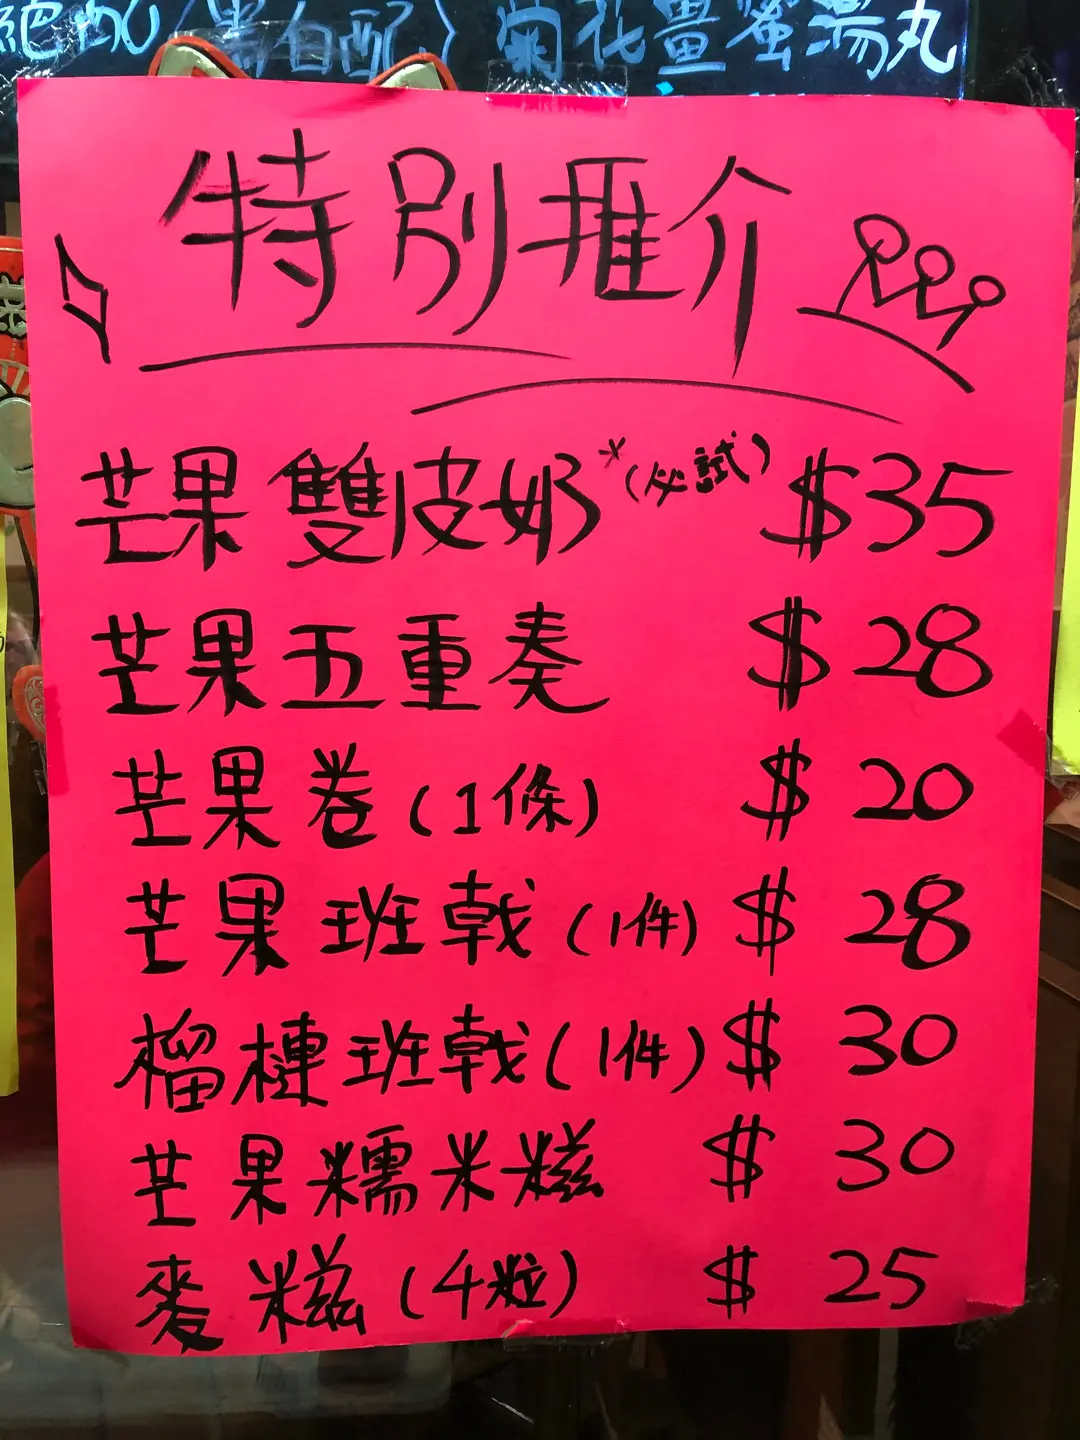 絕配(黑白配)菊花薑蜜湯丸
特別推介
芒果雙皮奶*(必試) $35
芒果五重奏 $28
芒果卷(1條) $20
芒果班戟(1件) $28
榴槤班戟(1件) $30
芒果糯米糍 $30
麥糍(4粒) $25